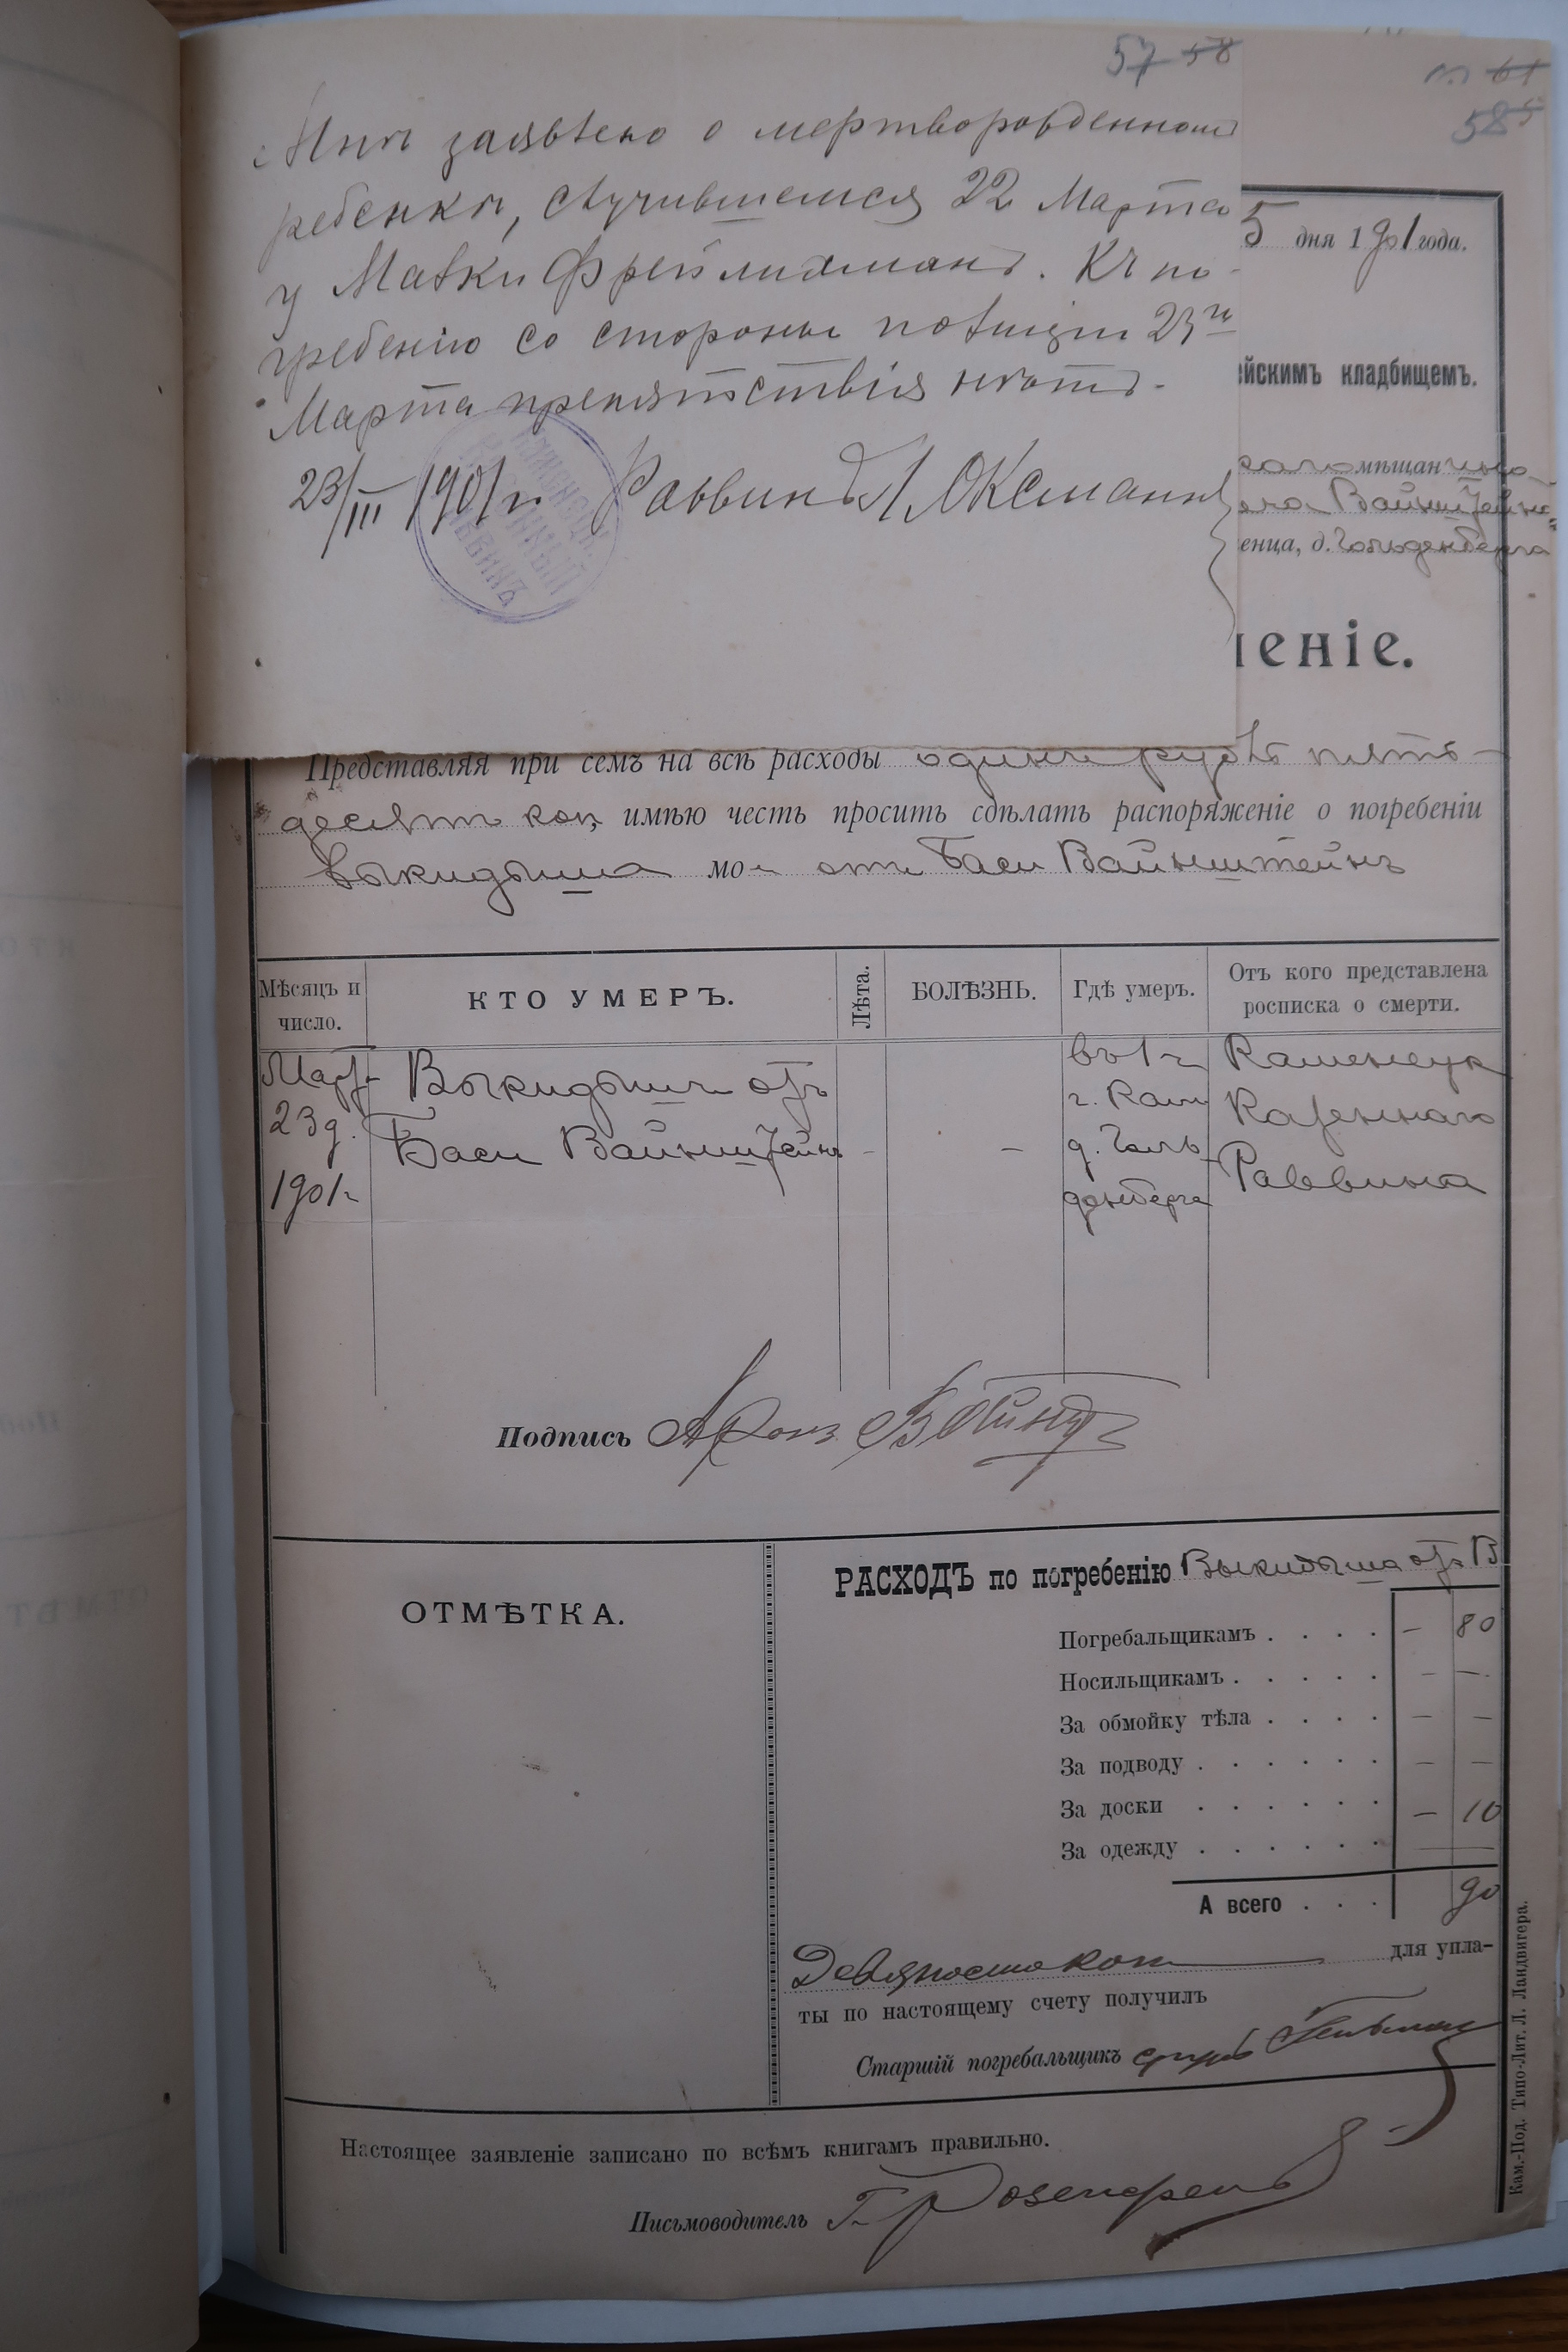 57 58
Мнѣ заявлено о мертворожденномъ
ребенкѣ, случившемся 22 Марта
у Малки Фрейлихманъ. Къ по-
гребенію со стороны полиціи 23го
Марта препятствія нѣтъ.
23/III 1901 г. Раввинъ Л. Оксманъ
КАЗЕННЫЙ
РАВВИНЪ
61
58
5 дня 1901 года.
ейскимъ кладбищемъ.
мѣщан
Вайнштейнъ
енца, д. Гольденберга
леніе.
Представляя при семъ на всѣ расходы одинъ рубль пять-
десятъ коп, имѣю честь просить сдѣлать распоряженіе о погребеніи
выкидыша мо отъ Баси Вайнштейнъ
Мѣсяцъ и число. КТО УМЕРЪ. Лѣта. БОЛѢЗНЬ. Гдѣ умеръ. Отъ кого представлена росписка о смерти.
Март 23 д. 1901 г. Выкидышъ отъ Баси Вайнштейнъ - - въ 1 ч г. Кам д. Голь-денберга Каменецк Казеннаго Раввина
Подпись Арон
ОТМѢТКА.
РАСХОДЪ по погребенію Выкидыша отъ В
Погребальщикамъ . . . . — 80
Носильщикамъ . . . . . — —
За обмойку тѣла . . . . — —
За подводу . . . . . . — —
За доски . . . . . . — 10
За одежду . . . . . . —
А всего . . . 90
Девяносто коп для упла-
ты по настоящему счету получилъ
Старшій погребальщикъ
Настоящее заявленіе записано по всѣмъ книгамъ правильно.
Письмоводитель Г. Розенфельд
Кам.-Под. Типо-Лит. Л. Ландвигера.